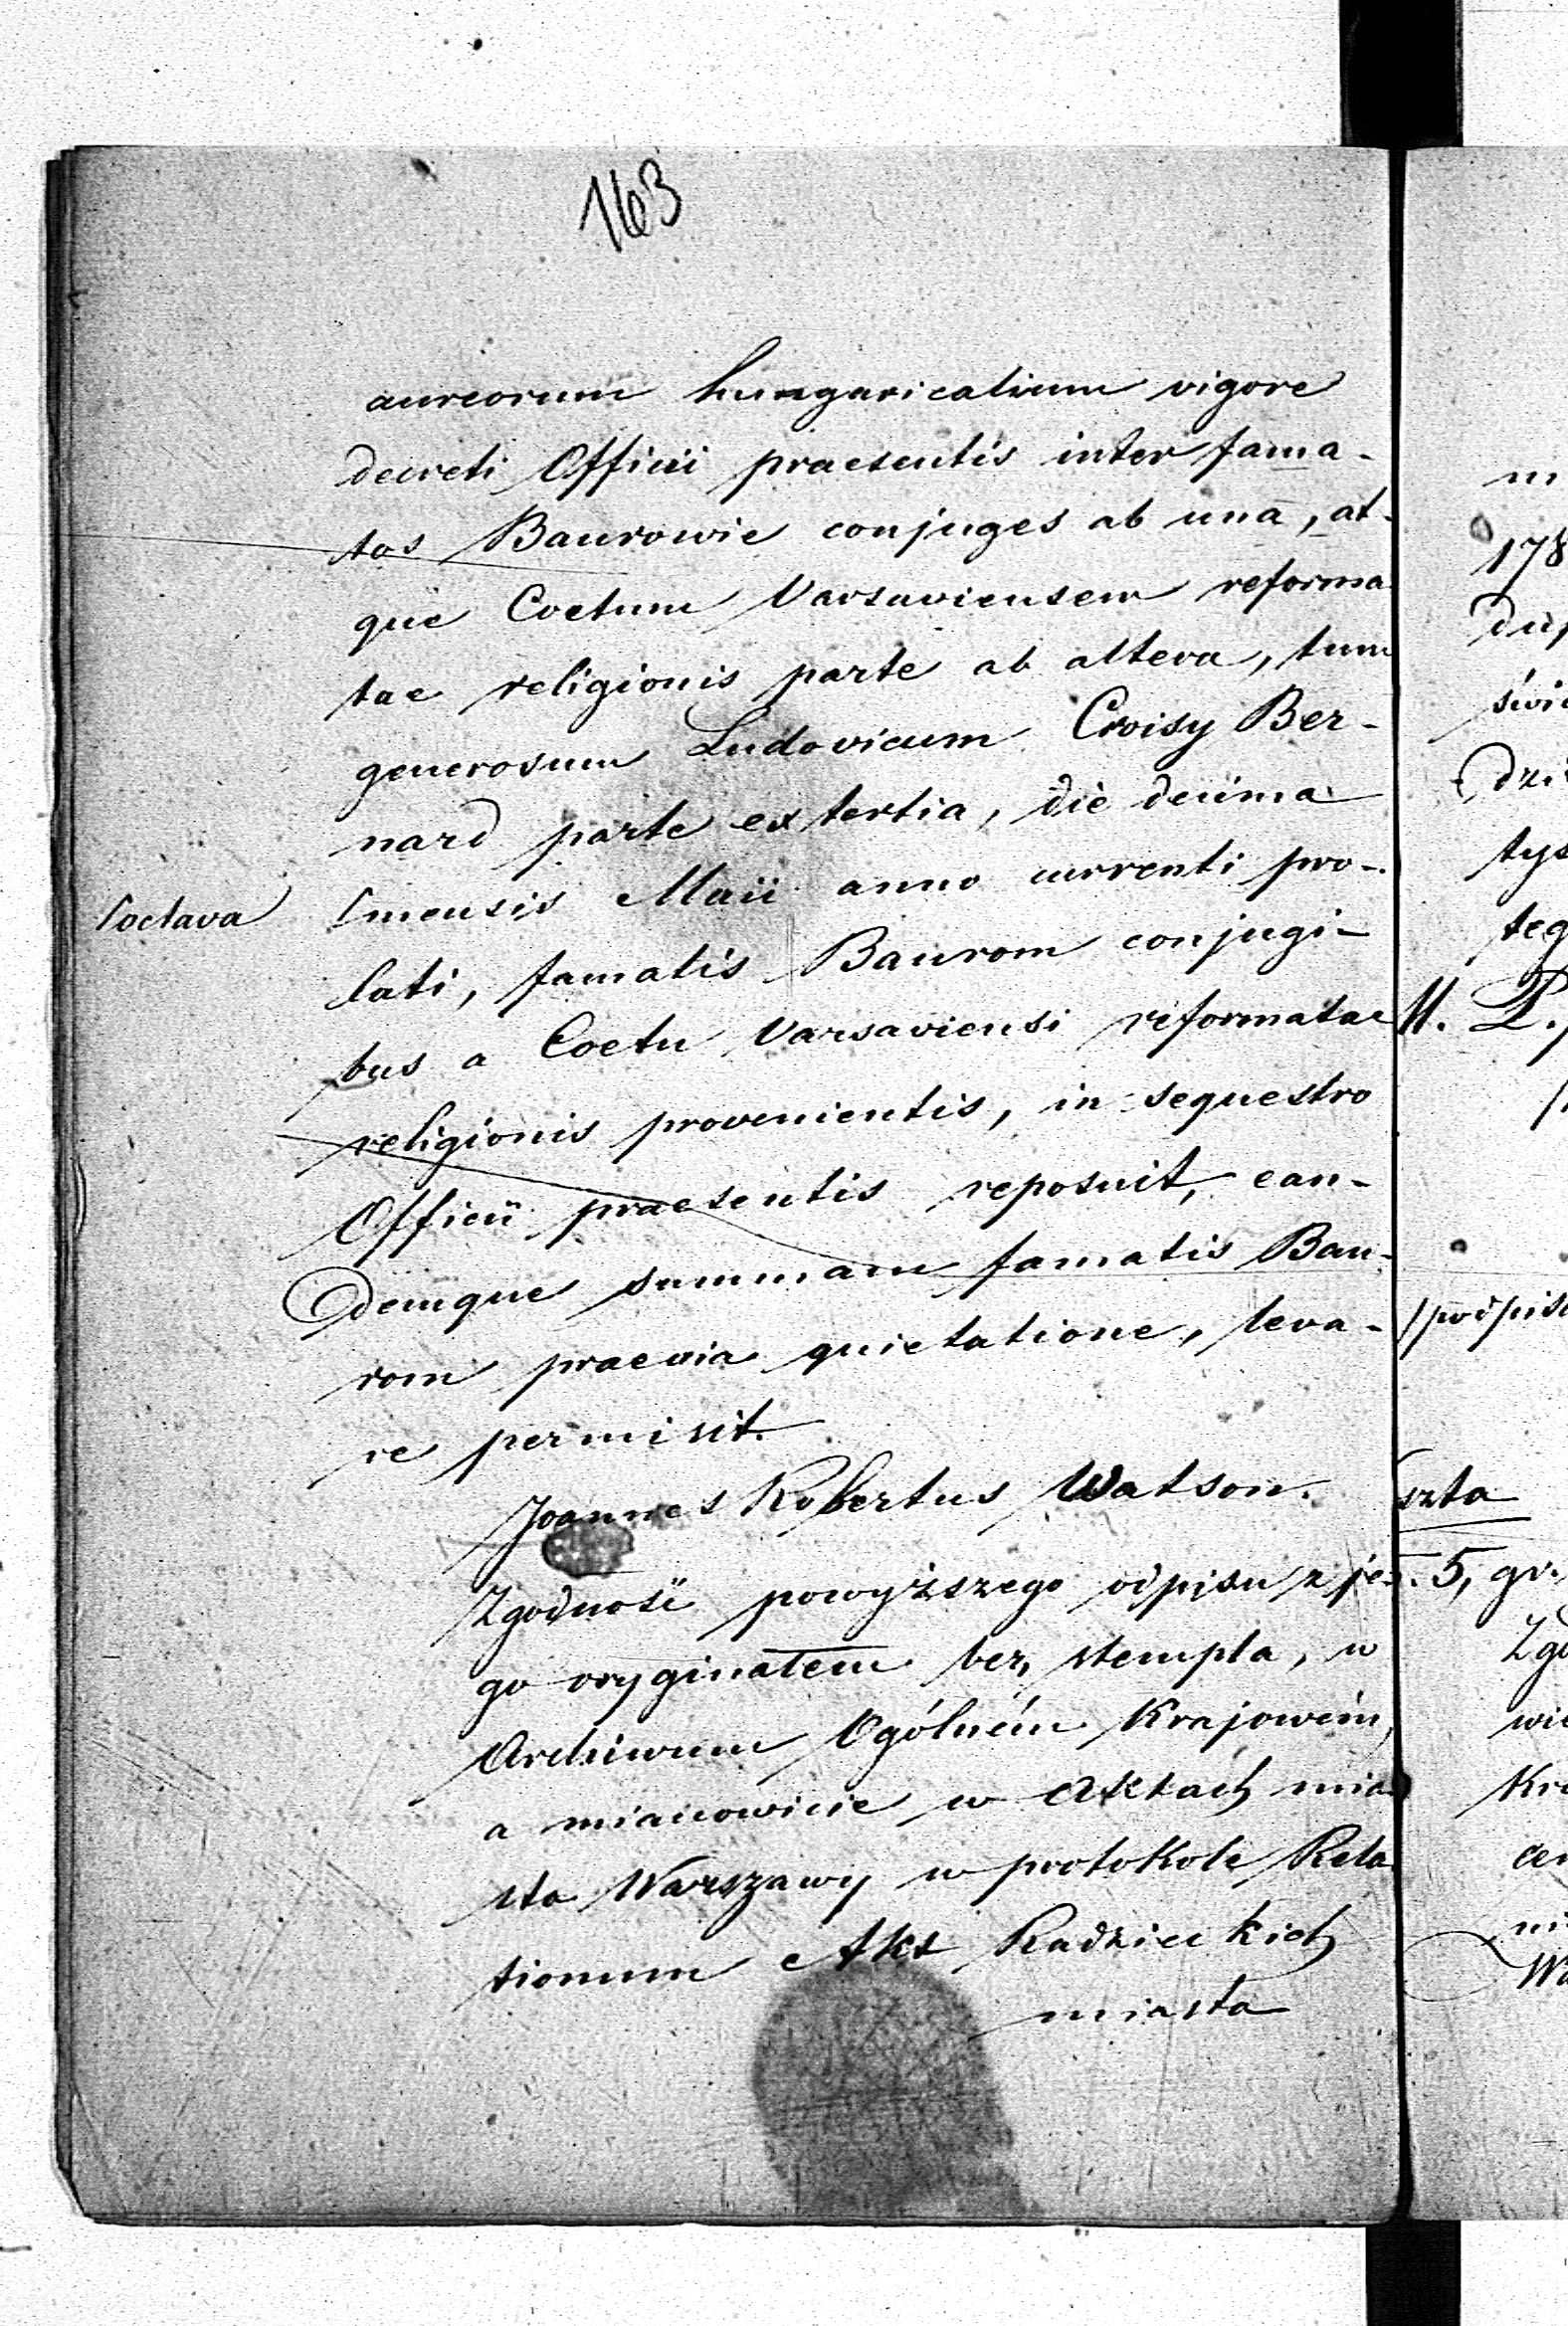 163
aureorum hungaricalium vigore
decreti Officii praesentis inter fama-
tos Baurowie conjuges ab una, at-
que Coetum Varsaviensem reforma
tae religionis parte ab altera, tum
generosum Ludovicum Croisy Ber-
nard parte ex tertia, die decima
/octava
/mensis Maii anno currenti pro-
lati, famatis Baurom conjugi-
bus a Coetu Varsaviensi reformatae
religionis provenientis, in sequestro
Officii praesentis reposuit, ean-
demque summam famatis Bau-
rom praevia quietatione, leva-
re permisit.
Joannes Robertus Watson.
Zgodność powyższego odpisu z je-
go oryginałem bez stempla, w
Archiwum Ogólném Krajowém,
a mianowicie w Aktach mia
sta Warszawy w protokole Rela
tionum Akt Radzieckich
miasta
m
178
dup
świa
dzi
tys
teg
M. P.
/podpis
szta
5, gr.
Zgo
wie
Kra